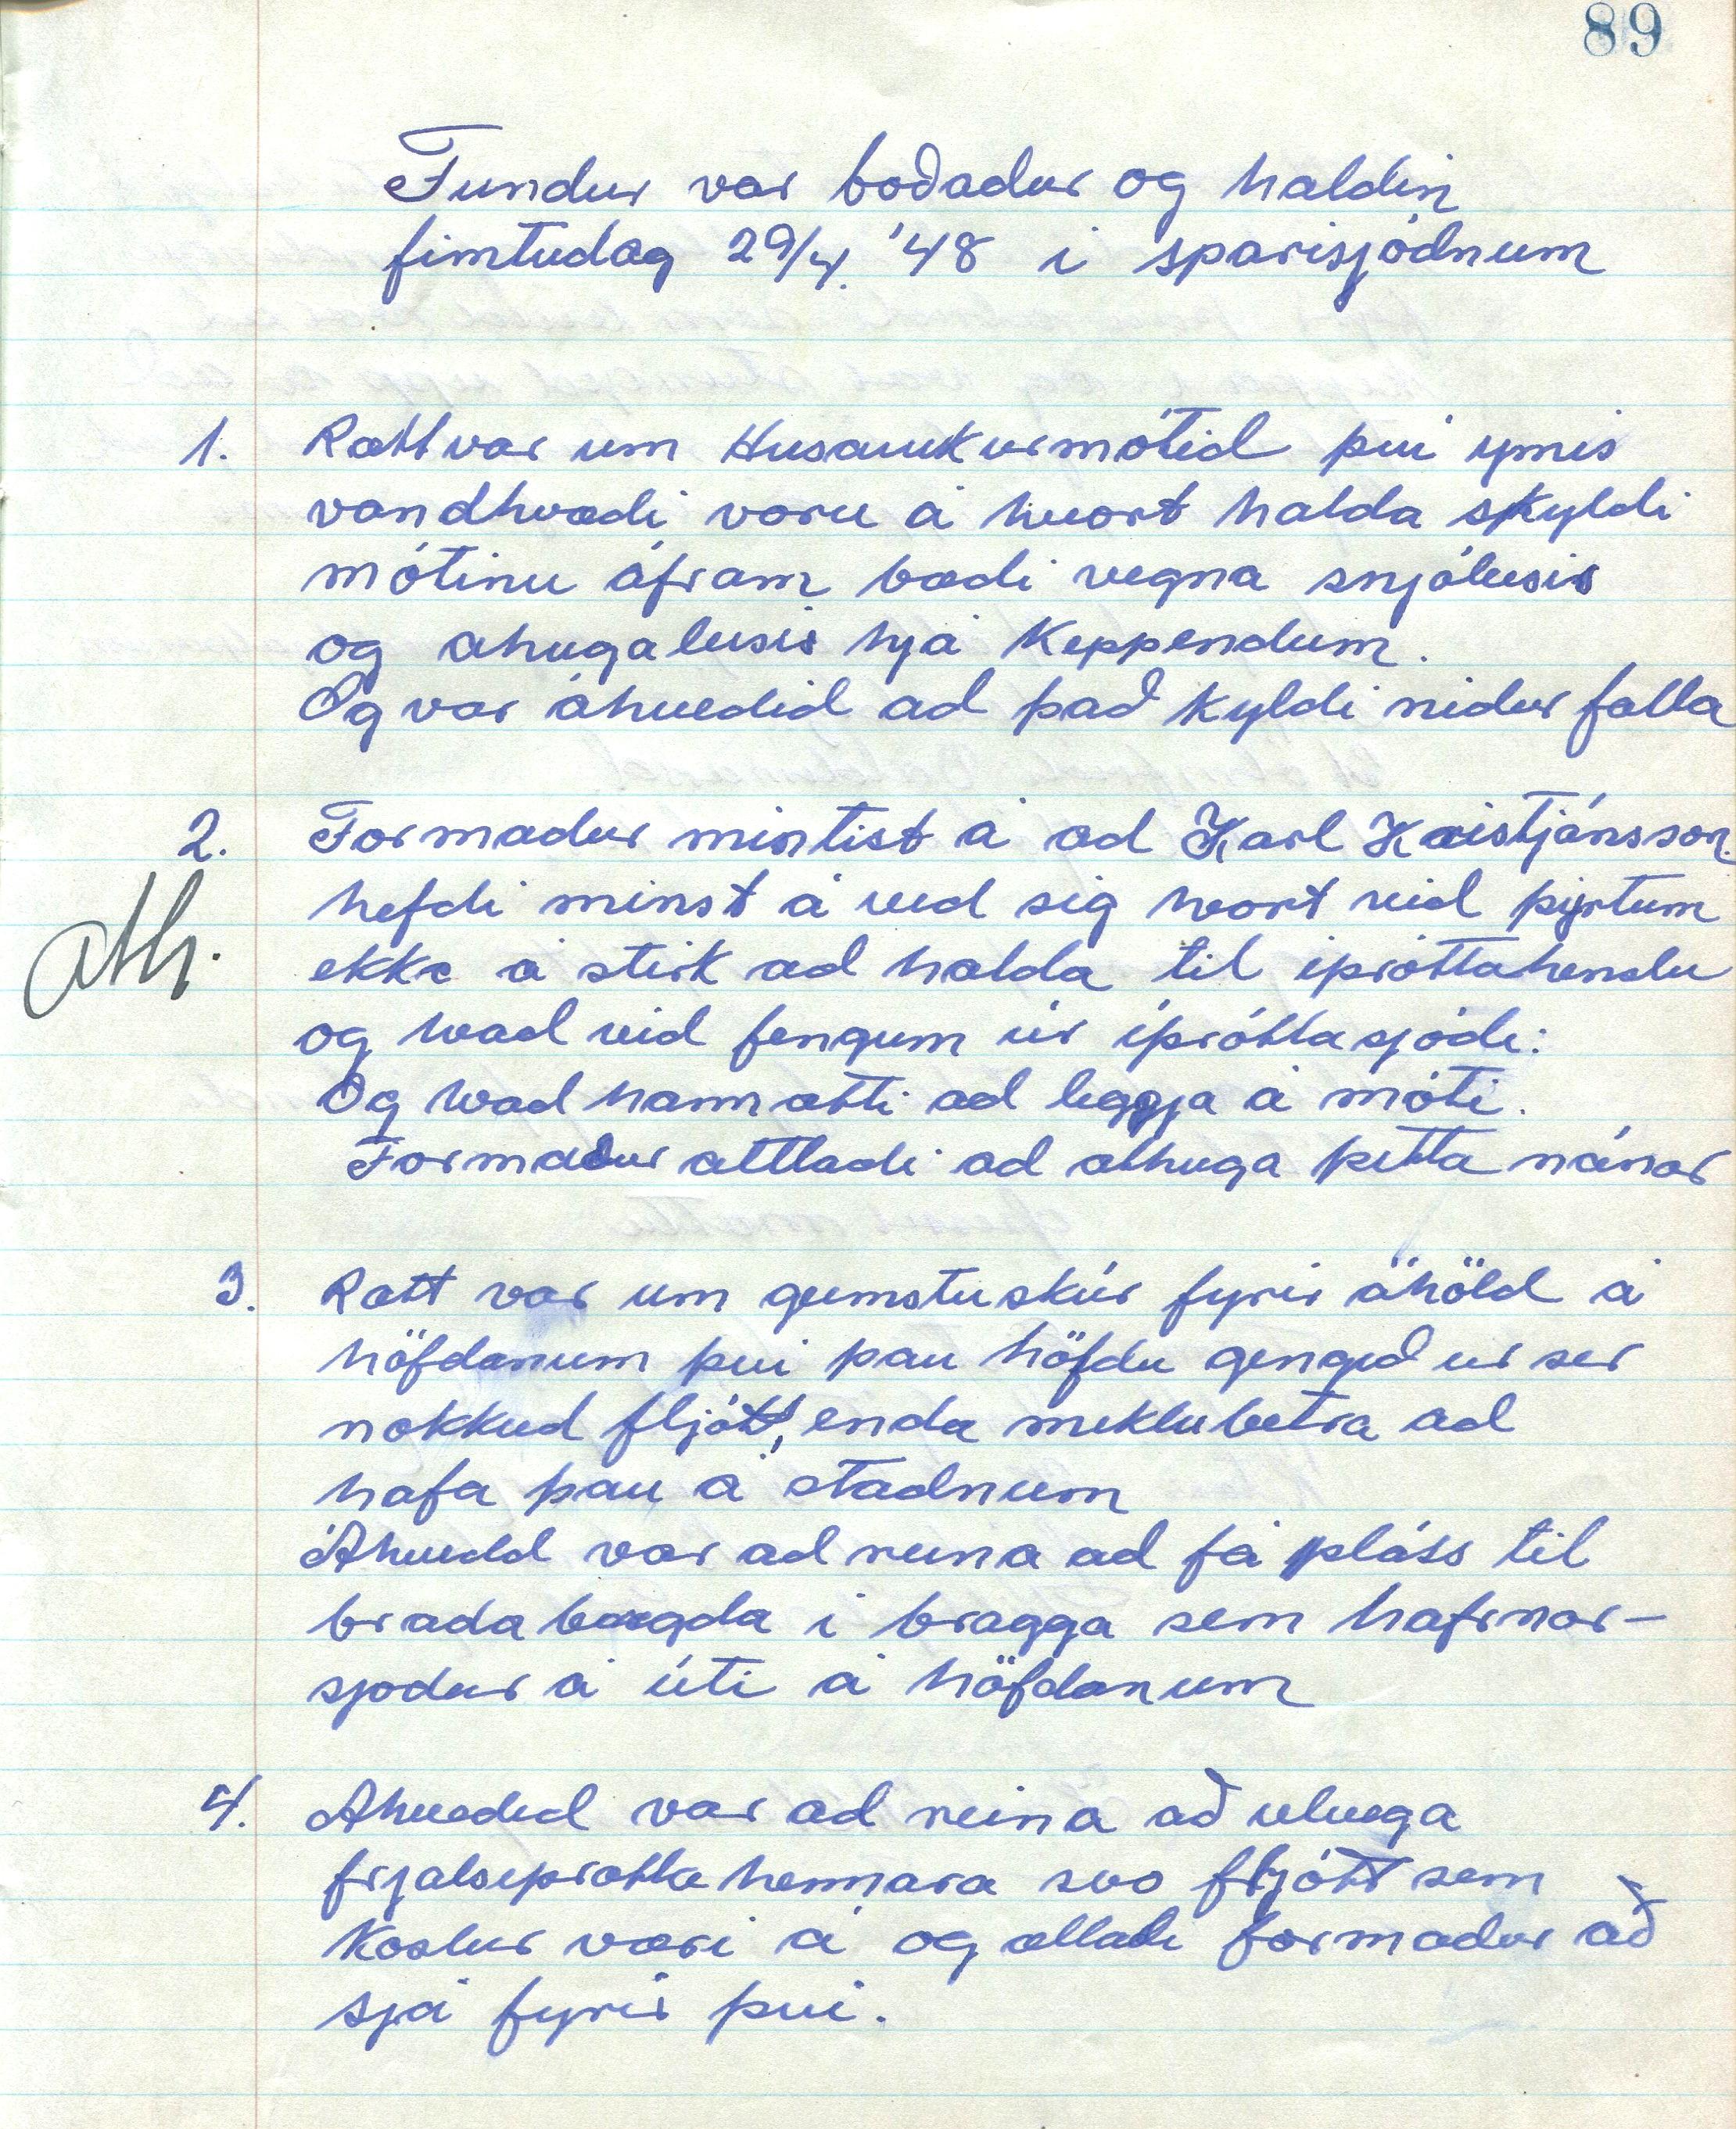 89
Fundur var boðadur og haldin
fimtudag 29/4. '48 i sparisjódnum
1. Rætt var um Husavikurmótid þvi ymis
vandkvædi voru á hvort halda skyldi
mótinu áfram bædi vegna snjóleisis
og ahugaleisis hjá keppendum.
Og var ákvedid ad það kyldi nidur falla
2. Formadur mintist á ad Karl Kristjánsson
hefdi minst á vid sig hvort vid þyrtum
ath.
ekki á stirk ad halda til iþróttakenslu
og hvad vid fengum úr íþróttasjódi:
Og hvad hann ætti ad leggja á móti.
Formaður ættladi ad athuga þetta nánar
3. Rætt var um geimstuskúr fyrir áhöld á
höfdanum þvi þau höfdu gengið ur ser
nokkud fljótt, enda miklu betra ad
hafa þau á stadnum
Ákvedd var ad reina ad fá pláss til
brada birgda i bragga sem hafrnar-
sjodur á úti á höfdanum
4. Akveded var ad reina að utvega
frjalsiþrotta kennara svo fljótt sem
kostur væri á og ætladi formadur að
sjá fyrir þvi.